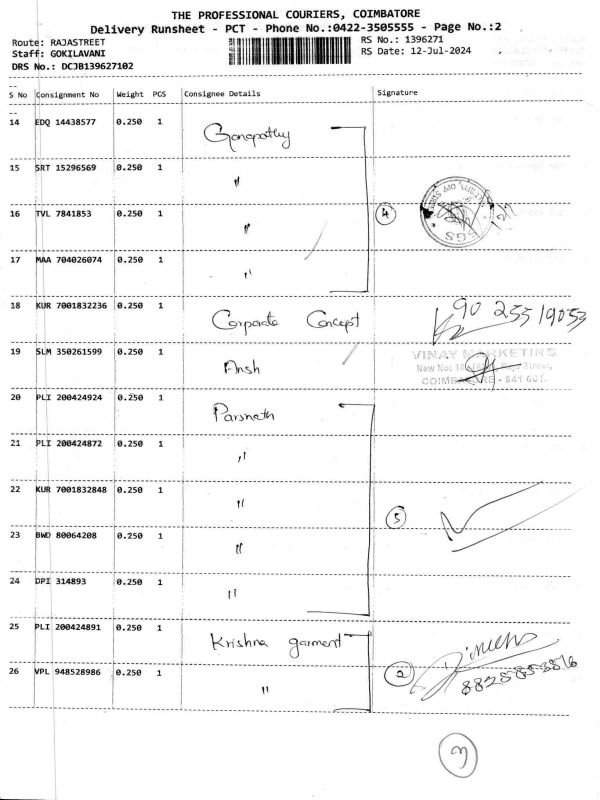 THE PROFESSIONAL COURIERS, COIMBATORE
Delivery Runsheet - PCT - Phone No.:0422-3505555 - Page No.:2
Route: RAJASTREET
RS No.: 1396271
Staff: GOKILAVANI
RS Date: 12-Jul-2024
DRS No.: DCJB139627102
S No Consignment No Weight PCS Consignee Details Signature
14 EDQ 14438577 0.250 1 Ganapathy
15 SRT 15296569 0.250 1 "
16 TVL 7841853 0.250 1 " 4
17 MAA 704026074 0.250 1 "
18 KUR 7001832236 0.250 1 Corporate Concept
19 SLM 350261599 0.250 1 Ansh
VINAY MARKETING
COIMBATORE - 641 001.
20 PLI 200424924 0.250 1 Parsnath
21 PLI 200424872 0.250 1 "
22 KUR 7001832848 0.250 1 " 5
23 BWD 80064208 0.250 1 "
24 DPI 314893 0.250 1 "
25 PLI 200424891 0.250 1 Krishna garment
26 VPL 948528986 0.250 1 " 2